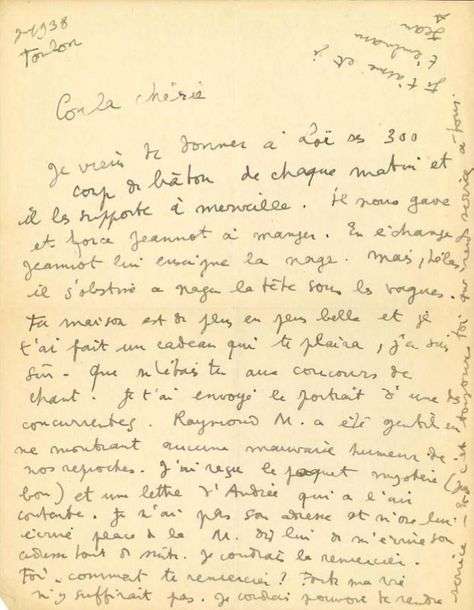 1938
Toulon
Coula chérie
Je viens de donner à Loï ses 300
coup de bâton de chaque matin et
il les supporte à merveille. Il nous gave
et force Jeannot à manger. En échange
Jeannot lui enseigne la nage. Mais, hélas,
il s'obstine à nager la tête sous les vagues.
Ta maison est de plus en plus belle et je
t'ai fait un cadeau qui te plaira, j'en suis
sûr. Que n'étais tu aux concours de
chant. Je t'ai envoyé le portrait d'une des
concurrentes. Raymond M. a été gentil en
ne montrant aucune mauvaise humeur de
nos reproches. J'ai reçu le paquet mystère (
bon) et une lettre d'Andrée qui a l'air
contente. Je n'ai pas son adresse et n'ose lui
écrire place de la M. dis lui de m'écrire son
adresse tout de suite. Je voudrais la remercier.
Toi - comment te remercier? Toute ma vie
n'y suffirait pas. Je voudrais pouvoir te rendre
service c'est toujours toi qui rends service à tous.
Je t'aime et je
t'embrasse
Jean